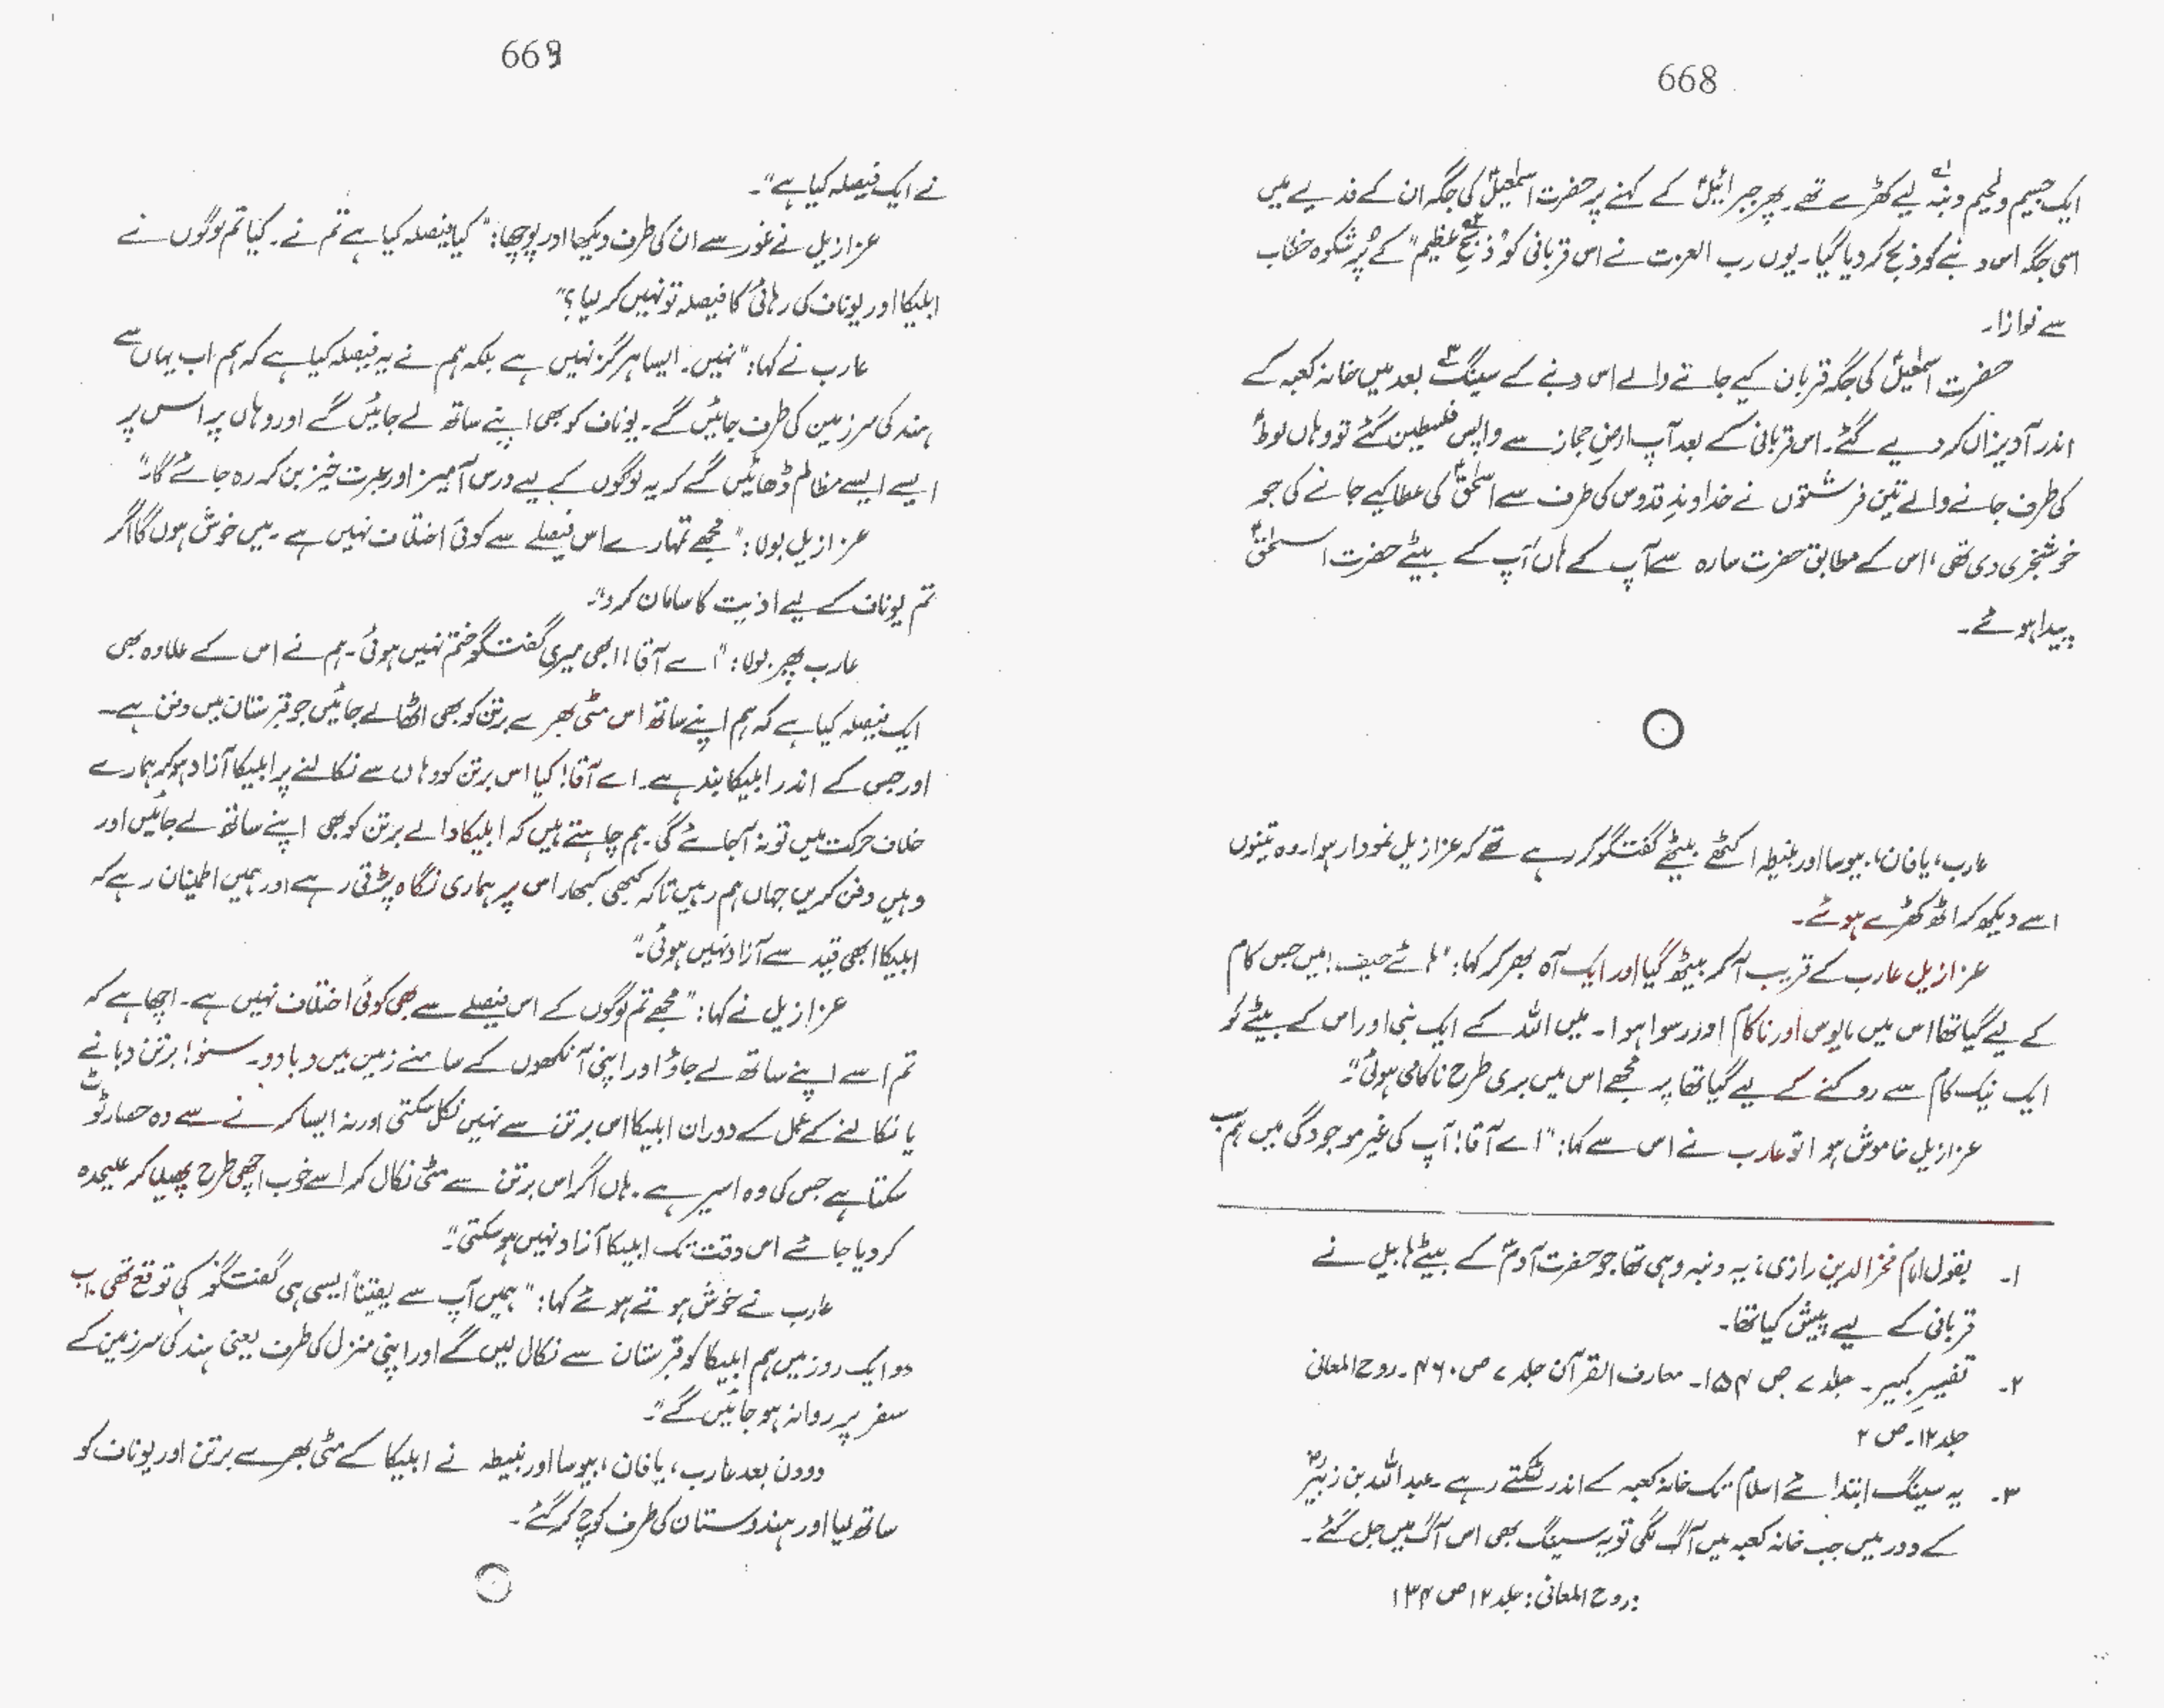 668
ایک جسیم و لحیم دنبہ۱ لیے کھڑے تھے۔ پھر جبرائیلؑ کے کہنے پر حضرت اسمٰعیلؑ کی جگہ ان کے فدیے میں
اسی جگہ اس دنبے کو ذبح کر دیا گیا۔ یوں رب العزت نے اس قربانی کو "ذبحِ عظیم۲" کے پُرشکوہ خطاب
سے نوازا۔
حضرت اسمٰعیلؑ کی جگہ قربان کیے جانے والے اس دنبے کے سینگ۳ بعد میں خانہ کعبہ کے
اندر آویزاں کر دیے گئے۔ اس قربانی کے بعد آپ ارضِ حجاز سے واپس فلسطین گئے تو وہاں لوطؑ
کی طرف جانے والے تین فرشتوں نے خداوندِ قدوس کی طرف سے اسحٰقؑ کی عطا کیے جانے کی جو
خوشخبری دی تھی، اس کے مطابق حضرت سارہ سے آپ کے ہاں آپ کے بیٹے حضرت اسحٰقؑ
پیدا ہوئے۔
عارب، یافان، بیوسا اور نبیطہ اکٹھے بیٹھے گفتگو کر رہے تھے کہ عزازیل نمودار ہوا۔ وہ تینوں
اسے دیکھ کر اٹھ کھڑے ہوئے۔
عزازیل عارب کے قریب آ کر بیٹھ گیا اور ایک آہ بھر کر کہا: "ہائے حیف! میں جس کام
کے لیے گیا تھا اس میں مایوس اور ناکام اور رسوا ہوا۔ میں اللہ کے ایک نبی اور اس کے بیٹے کو
ایک نیک کام سے روکنے کے لیے گیا تھا پر مجھے اس میں بری طرح ناکامی ہوئی"۔
عزازیل خاموش ہوا تو عارب نے اس سے کہا: "اے آقا! آپ کی غیر موجودگی میں ہم سب
۱۔ بقول امام فخر الدین رازی، یہ دنبہ وہی تھا جو حضرت آدمؑ کے بیٹے ہابیل نے
قربانی کے لیے پیش کیا تھا۔
۲۔ تفسیرِ کبیر۔ جلد ۷ ص ۱۵۴۔ معارف القرآن جلد ۷ ص ۴۶۰۔ روح المعانی
جلد ۱۲۔ ص ۲
۳۔ یہ سینگ ابتدائے اسلام تک خانہ کعبہ کے اندر لٹکتے رہے۔ عبداللہ بن زبیرؓ
کے دور میں جب خانہ کعبہ میں آگ لگی تو یہ سینگ بھی اس آگ میں جل گئے۔
:روح المعانی: جلد ۱۲ ص ۱۳۴
669
نے ایک فیصلہ کیا ہے"۔
عزازیل نے غور سے ان کی طرف دیکھا اور پوچھا: "کیا فیصلہ کیا ہے تم نے۔ کیا تم لوگوں نے
ابلیکا اور یوناف کی رہائی کا فیصلہ تو نہیں کر لیا؟"
عارب نے کہا: "نہیں۔ ایسا ہرگز نہیں ہے بلکہ ہم نے یہ فیصلہ کیا ہے کہ ہم اب یہاں سے
ہند کی سرزمین کی طرف جائیں گے۔ یوناف کو بھی اپنے ساتھ لے جائیں گے اور وہاں پر اس پر
ایسے ایسے مظالم ڈھائیں گے کہ یہ لوگوں کے لیے درس آمیز اور عبرت خیز بن کر رہ جائے گا۔"
عزازیل بولا: "مجھے تمہارے اس فیصلے سے کوئی اختلاف نہیں ہے۔ میں خوش ہوں گا اگر
تم یوناف کے لیے اذیت کا سامان کرو"۔
عارب پھر بولا: "اے آقا! ابھی میری گفتگو ختم نہیں ہوئی۔ ہم نے اس کے علاوہ بھی
ایک فیصلہ کیا ہے کہ ہم اپنے ساتھ اس مٹی بھرے برتن کو بھی اٹھا لے جائیں جو قبرستان میں دفن ہے۔
اور جس کے اندر ابلیکا بند ہے۔ اے آقا! کیا اس برتن کو وہاں سے نکالنے پر ابلیکا آزاد ہو کر ہمارے
خلاف حرکت میں تو نہ آ جائے گی۔ ہم چاہتے ہیں کہ ابلیکا والے برتن کو بھی اپنے ساتھ لے جائیں اور
وہیں دفن کریں جہاں ہم رہیں تاکہ کبھی کبھار اس پر ہماری نگاہ پڑتی رہے اور ہمیں اطمینان رہے کہ
ابلیکا ابھی قید سے آزاد نہیں ہوئی۔"
عزازیل نے کہا: "مجھے تم لوگوں کے اس فیصلے سے بھی کوئی اختلاف نہیں ہے۔ اچھا ہے کہ
تم اسے اپنے ساتھ لے جاؤ اور اپنی آنکھوں کے سامنے زمین میں دبا دو۔ سنو! برتن دبانے
یا نکالنے کے عمل کے دوران ابلیکا اس برتن سے نہیں نکل سکتی اور نہ ایسا کرنے سے وہ حصار ٹوٹ
سکتا ہے جس کی وہ اسیر ہے۔ ہاں اگر اس برتن سے مٹی نکال کر اسے خوب اچھی طرح پھیلا کر علیحدہ
کر دیا جائے اس وقت تک ابلیکا آزاد نہیں ہو سکتی"۔
عارب نے خوش ہوتے ہوئے کہا: "ہمیں آپ سے یقیناً ایسی ہی گفتگو کی توقع تھی۔ اب
دو ایک روز میں ہم ابلیکا کو قبرستان سے نکال لیں گے اور اپنی منزل کی طرف یعنی ہند کی سرزمین کے
سفر پر روانہ ہو جائیں گے"۔
دو دن بعد عارب، یافان، بیوسا اور نبیطہ نے ابلیکا کے مٹی بھرے برتن اور یوناف کو
ساتھ لیا اور ہندوستان کی طرف کوچ کر گئے۔